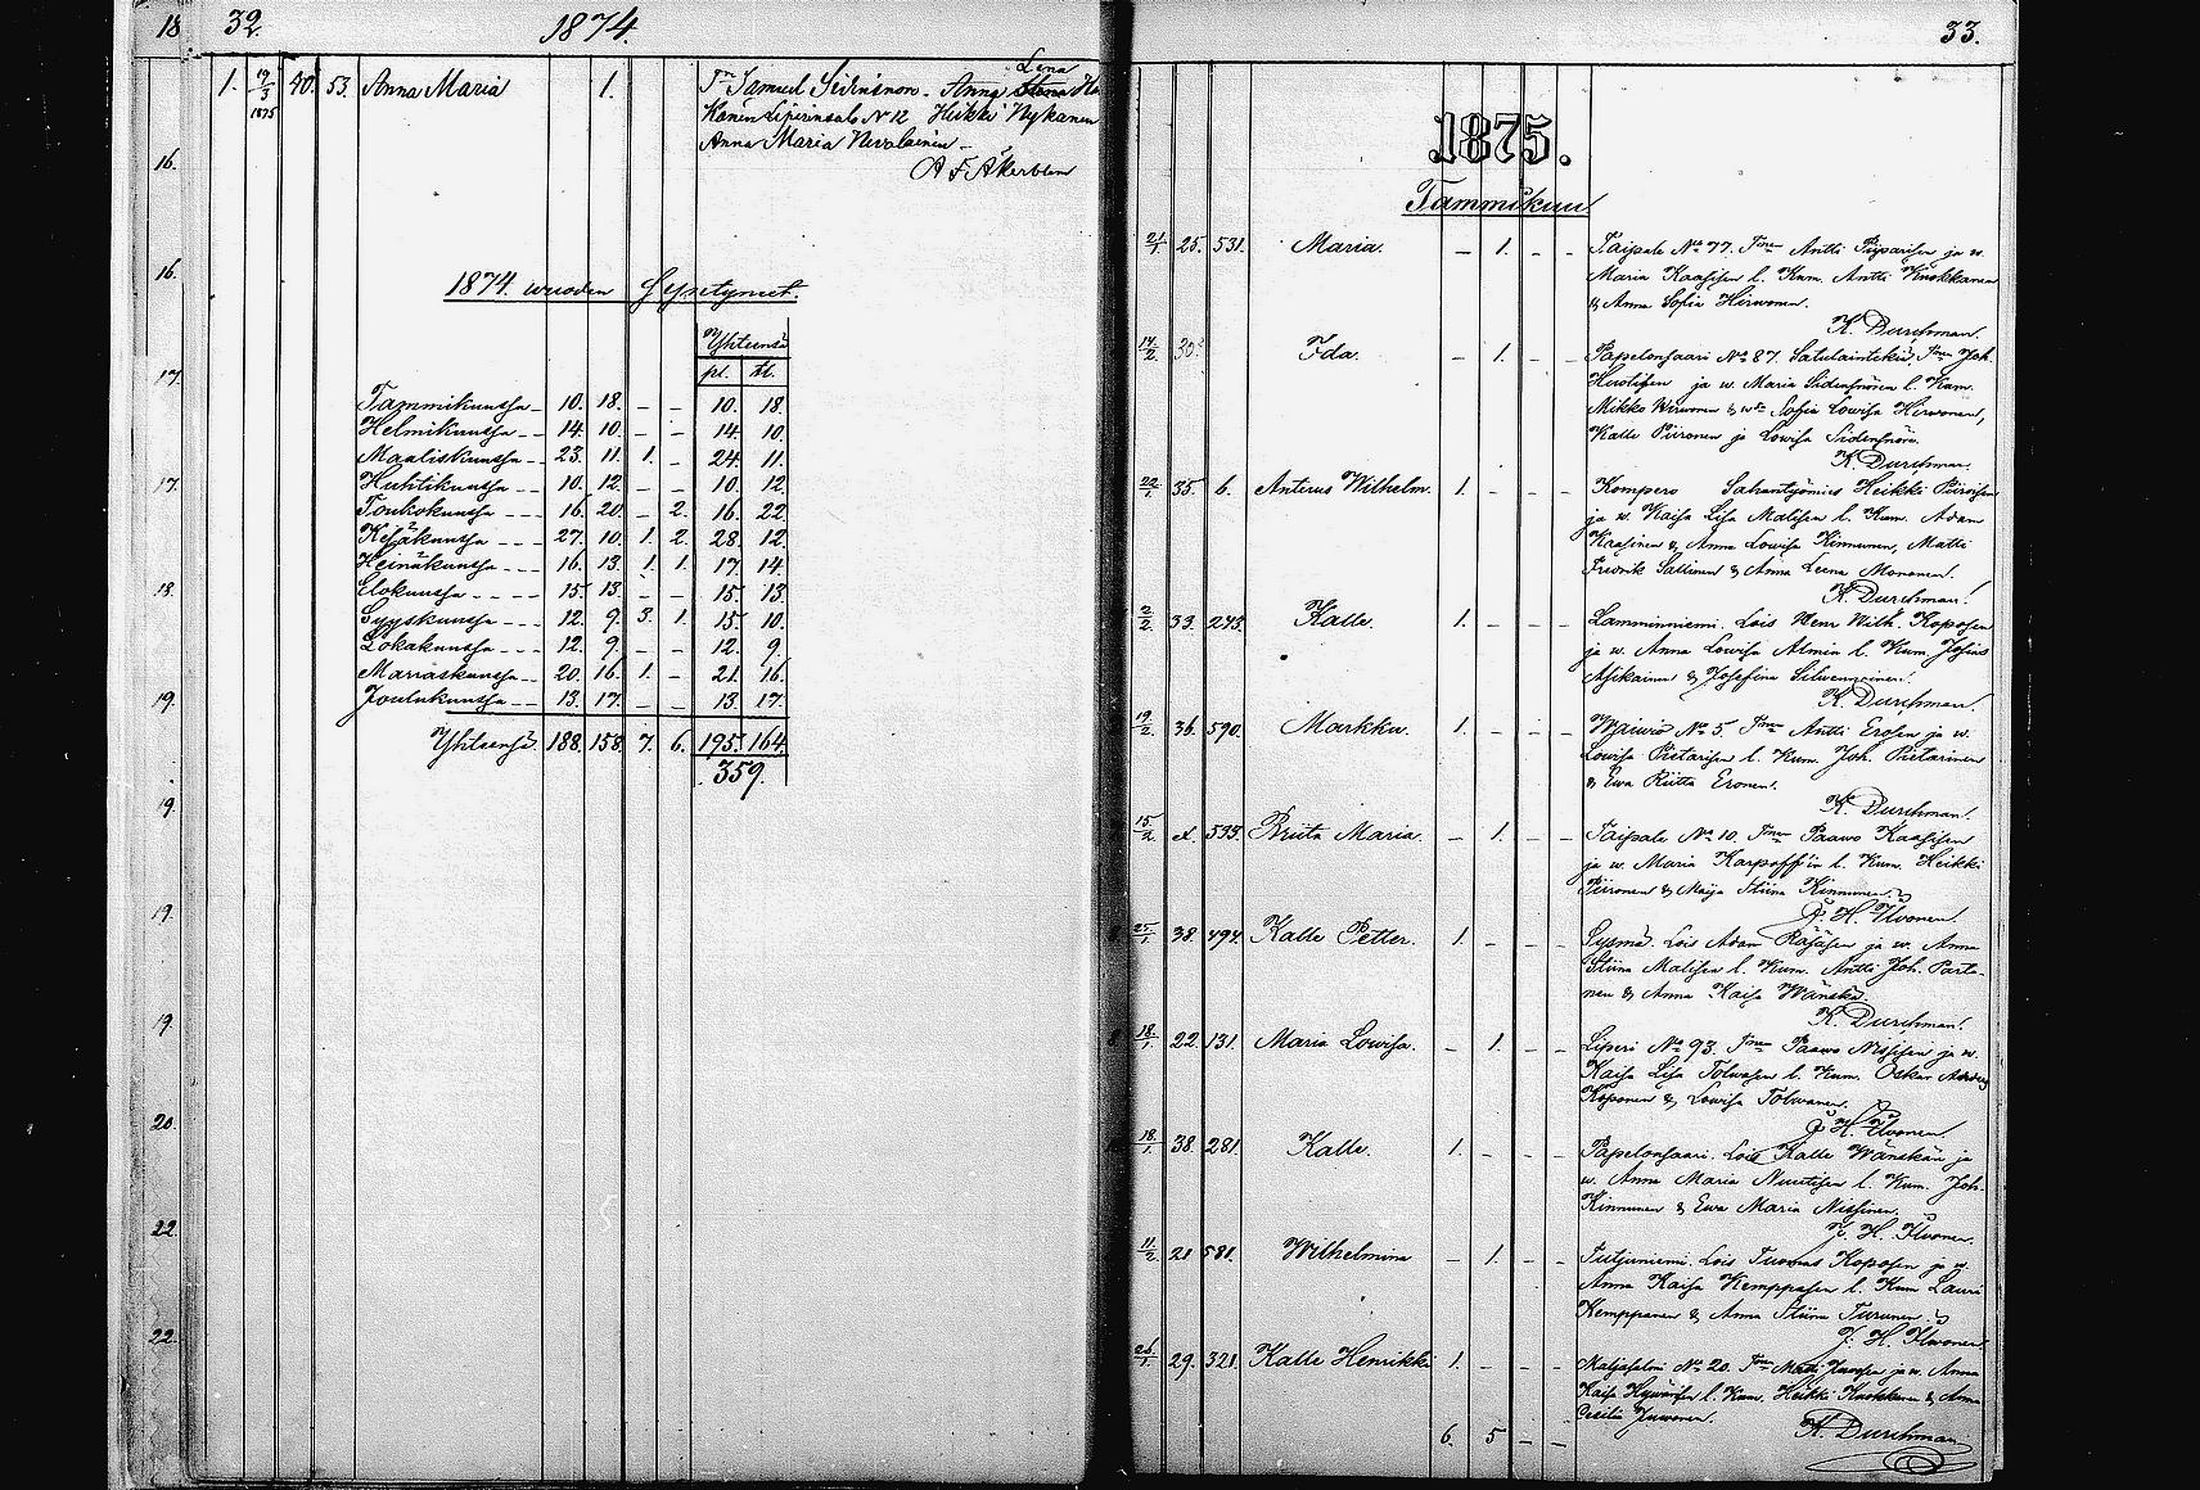 18 32. 1874.
1. 19/3 1875 40. 53. Anna Maria 1. Tn Samuel Sidensnon. Anna Lena
Kanen Liperinsalo N 12 Heikki Nykanen
Anna Maria Nevalainen
A F Åkerblom
16.
16.
17.
17.
18.
19.
19.
19.
19.
20.
22.
22.
1874. wuoden Syntyneet.
Yhteensä
pl. tl.
Tammikuussa 10. 18. – – 10. 18.
Helmikuussa 14. 10. – – 14. 10.
Maaliskuussa 23. 11. 1. – 24. 11.
Huhtikuussa 10. 12. – – 10. 12.
Toukokuussa 16. 20. – 2. 16. 22.
Kesäkuussa 27. 10. 1. 2. 28. 12.
Heinäkuussa 16. 13. 1. 1. 17. 14.
Elokuussa 15. 13. – – 15. 13.
Syyskuussa 12. 9. 3. 1. 15. 10.
Lokakuussa 12. 9. – – 12. 9.
Marraskuussa 20. 16. 1. – 21. 16.
Joulukuussa 13. 17. – – 13. 17.
Yhteensä 188. 158. 7. 6. 195. 164.
359.
33.
1875.
Tammikuu
21/1 25. 531. Maria. – 1. – – Taipale No 77. Tmen Antti Piiparisen ja w.
Maria Kaasisen l. Kum. Antti Kuokkanen
& Anna Sofia Hirwonen.
K. Durchman.
14/2 30. Ida. – 1. – – Papelonsaari No 87. Satulaintekiä Tmen Joh.
Huotisen ja w. Maria Sidensnören l. Kum.
Mikko Hirwonen & Sofia Lowisa Hirwonen,
Kalle Piironen ja Lowisa Sidensnöre.
K. Durchman.
22/1 35. 6. Anterus Wilhelm. 1. – – – Kompero Sahantyömies Heikki Piiroisen
ja w. Kaisa Lisa Malisen l. Kum. Adam
Kaasinen & Anna Lowisa Kinnunen, Matti
Fredrik Sallinen & Anna Leena Mononen.
K. Durchman.
2/2 33. 243. Kalle. 1. – – – Lamminniemi. Lois Henr Wilh. Koposen
ja w. Anna Lowisa Almin l. Kum. Josias
Asikainen & Josefina Silwennoinen.
K. Durchman.
19/2 36. 590. Markku. 1. – – – Waiwio No 5. Tmen Antti Erosen ja w.
Lowisa Pietarisen l. Kum. Joh. Pietarinen
& Ewa Riitta Eronen.
K. Durchman.
15/2 533. Briita Maria. – 1. – – Taipale No 10. Tmen Paawo Kaasisen
ja w. Maria Karpoff'in l. Kum. Heikki
Piironen & Maija Stiina Kinnunen.
J. H. Ilvonen.
25/1 38. 494. Kalle Petter. 1. – – – Sysmä. Lois Adam Räsäsen ja w. Anna
Stiina Malisen l. Kum. Antti Joh. Parta-
nen & Anna Kaisa Wänskä.
K. Durchman.
18/1 22. 131. Maria Lowisa. – 1. – – Liperi No 93. Tmen Paawo Nissisen ja w.
Kaisa Lisa Tolwasen l. Kum. Oskar
Koponen & Lowisa Tolwanen.
J. H. Ilvonen.
18/1 38. 281. Kalle. 1. – – – Papelonsaari. Lois Kalle Wänskän ja
w. Anna Maria Nuutisen l. Kum. Joh.
Kinnunen & Ewa Maria Nissinen.
J. H. Ilvonen.
11/2 21 581. Wilhelmina – 1. – – Tutjuniemi. Lois Tuomas Koposen ja w.
Anna Kaisa Kemppasen l. Kum Lauri
Kemppanen & Anna Stiina Turunen.
J. H. Ilvonen.
26/1 29. 321. Kalle Henrikki 1. – – – Maljasalmi No 20. Tmen Matti Juwosen ja w. Anna
Kaisa Hywärisen l. Kum. Heikki Kuokkanen & Anna
Cecilia Juwonen.
K. Durchman
6. 5 – –